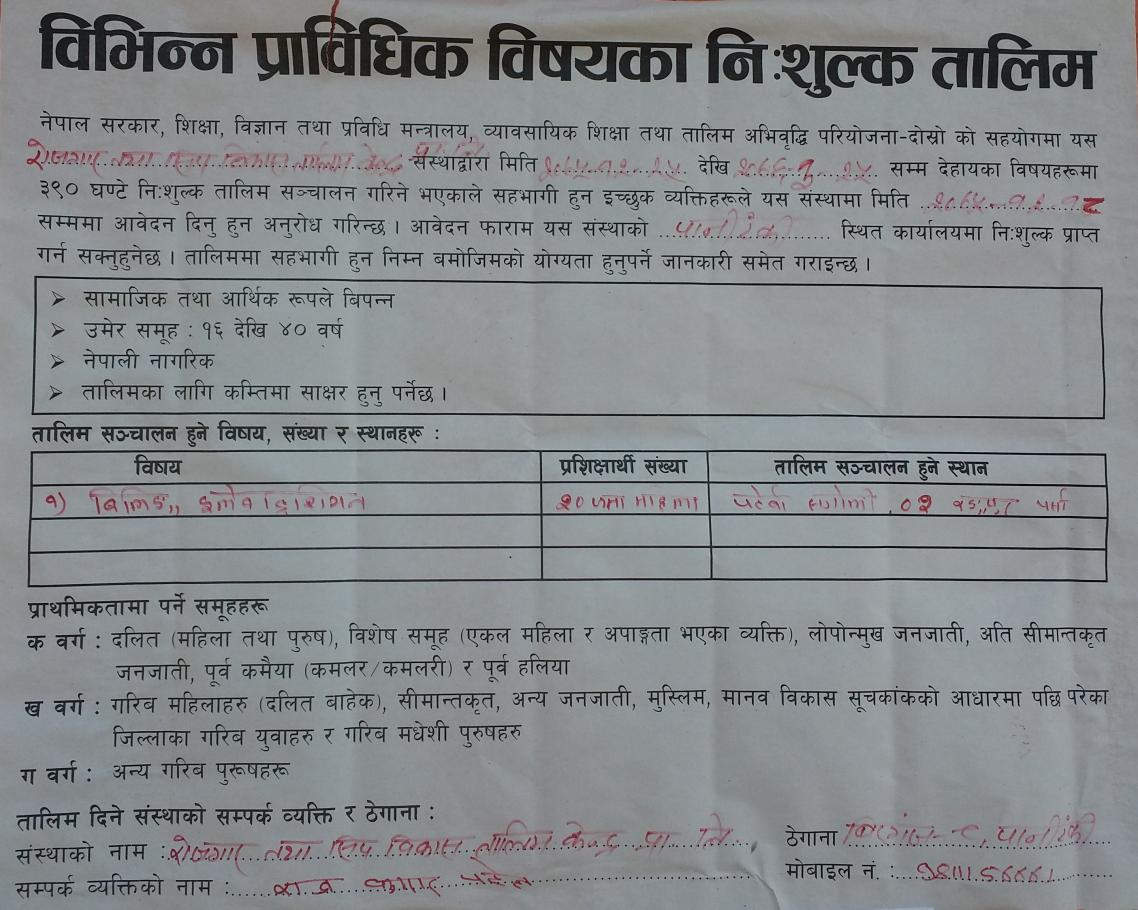 विभिन्न प्राविधिक विषयका निःशुल्क तालिम
नेपाल सरकार, शिक्षा, विज्ञान तथा प्रविधि मन्त्रालय, व्यावसायिक शिक्षा तथा तालिम अभिवृद्धि परियोजना-दोस्रो को सहयोगमा यस
रोजगार तथा सिप विकास तालिम केन्द्र संस्थाद्वारा मिति देखि सम्म देहायका विषयहरूमा
३९० घण्टे निःशुल्क तालिम सञ्चालन गरिने भएकाले सहभागी हुन इच्छुक व्यक्तिहरूले यस संस्थामा मिति
सम्ममा आवेदन दिनु हुन अनुरोध गरिन्छ । आवेदन फाराम यस संस्थाको पानीटंकी स्थित कार्यालयमा निःशुल्क प्राप्त
गर्न सक्नुहुनेछ । तालिममा सहभागी हुन निम्न बमोजिमको योग्यता हुनुपर्ने जानकारी समेत गराइन्छ ।
➢ सामाजिक तथा आर्थिक रूपले बिपन्न
➢ उमेर समूह : १६ देखि ४० वर्ष
➢ नेपाली नागरिक
➢ तालिमका लागि कम्तिमा साक्षर हुनु पर्नेछ ।
तालिम सञ्चालन हुने विषय, संख्या र स्थानहरू :
विषय प्रशिक्षार्थी संख्या तालिम सञ्चालन हुने स्थान
१) बिल्डिङ्ग इलेक्ट्रिशियन २० जना महिला पटेर्वा सुगौली
प्राथमिकतामा पर्ने समूहहरू
क वर्ग : दलित (महिला तथा पुरुष), विशेष समूह (एकल महिला र अपाङ्गता भएका व्यक्ति), लोपोन्मुख जनजाती, अति सीमान्तकृत
जनजाती, पूर्व कमैया (कमलर/कमलरी) र पूर्व हलिया
ख वर्ग : गरिब महिलाहरु (दलित बाहेक), सीमान्तकृत, अन्य जनजाती, मुस्लिम, मानव विकास सूचकांकको आधारमा पछि परेका
जिल्लाका गरिब युवाहरु र गरिब मधेशी पुरुषहरु
ग वर्ग : अन्य गरिब पुरूषहरू
तालिम दिने संस्थाको सम्पर्क व्यक्ति र ठेगाना :
संस्थाको नाम : रोजगार तथा सिप विकास तालिम केन्द्र प्रा लि ठेगाना बिरगंज-८, पानीटंकी
सम्पर्क व्यक्तिको नाम : कुमार मोबाइल नं. :